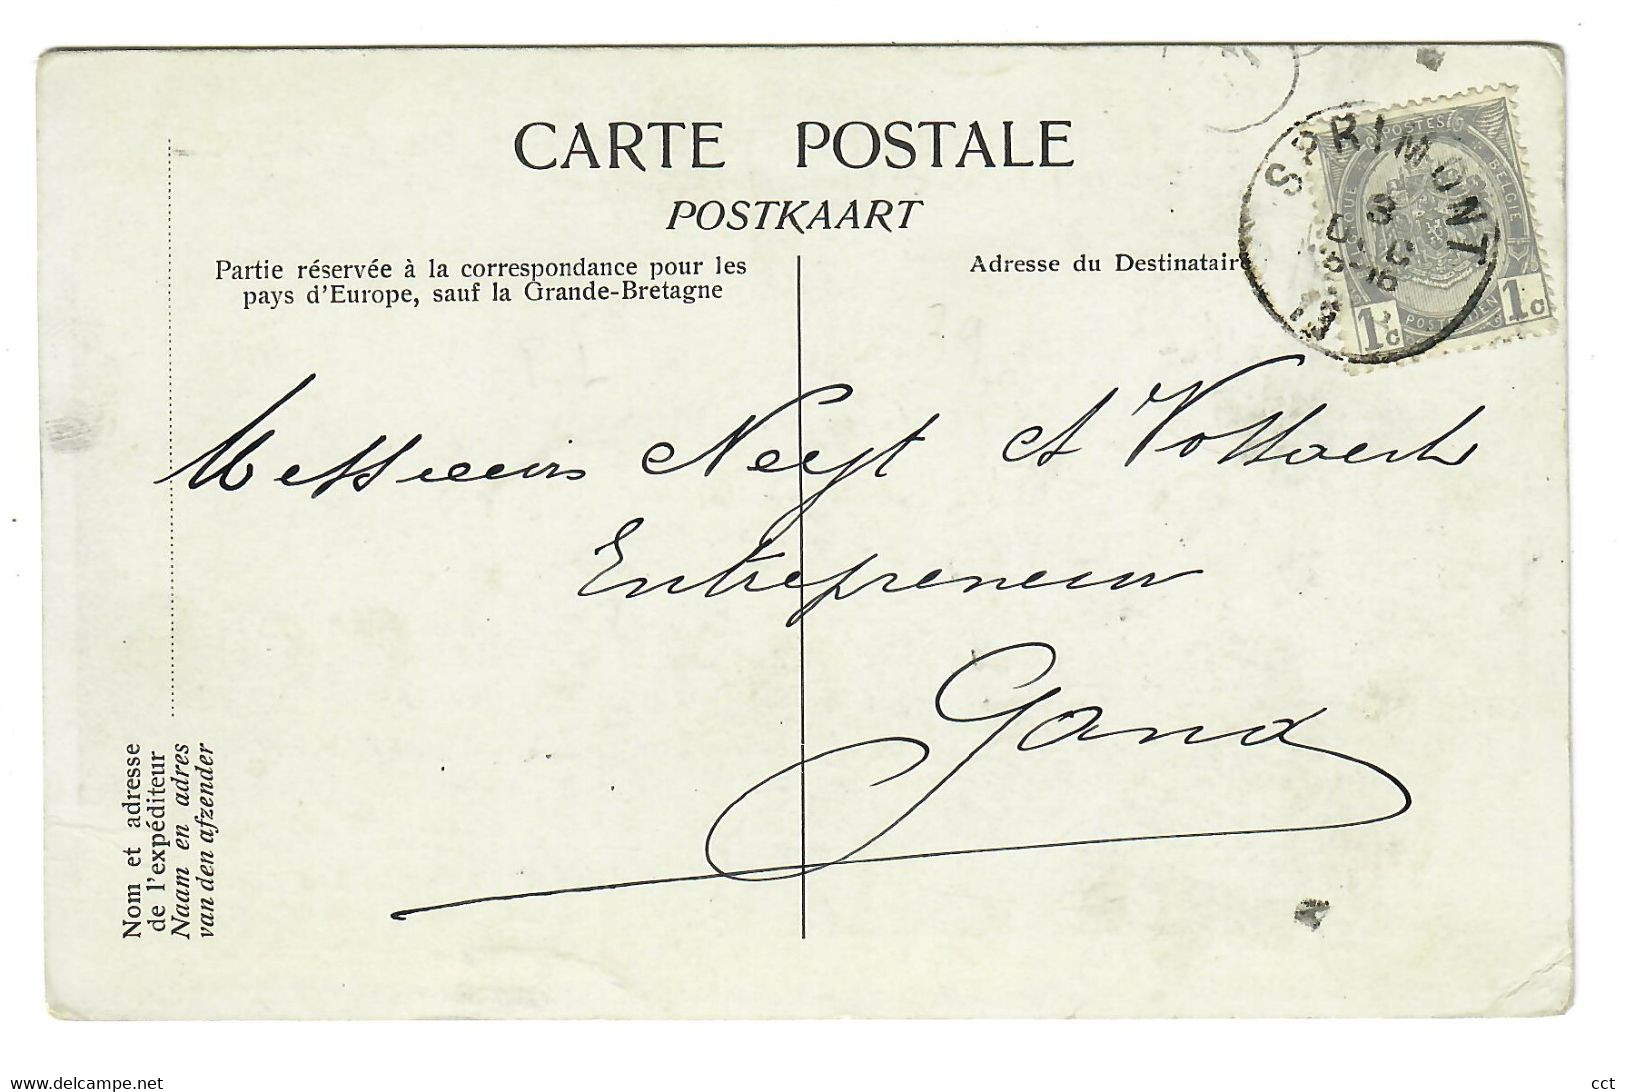 CARTE POSTALE
POSTKAART
Partie réservée à la correspondance pour les
pays d'Europe, sauf la Grande-Bretagne
Adresse du Destinataire
SPRIMONT
POSTES
BELGIE
POSTERIJEN
1c 1c
Messieurs Neyt et Vottaert
Entrepreneur
Gand
Nom et adresse
de l'expéditeur
Naam en adres
van den afzender
www.delcampe.net
cct